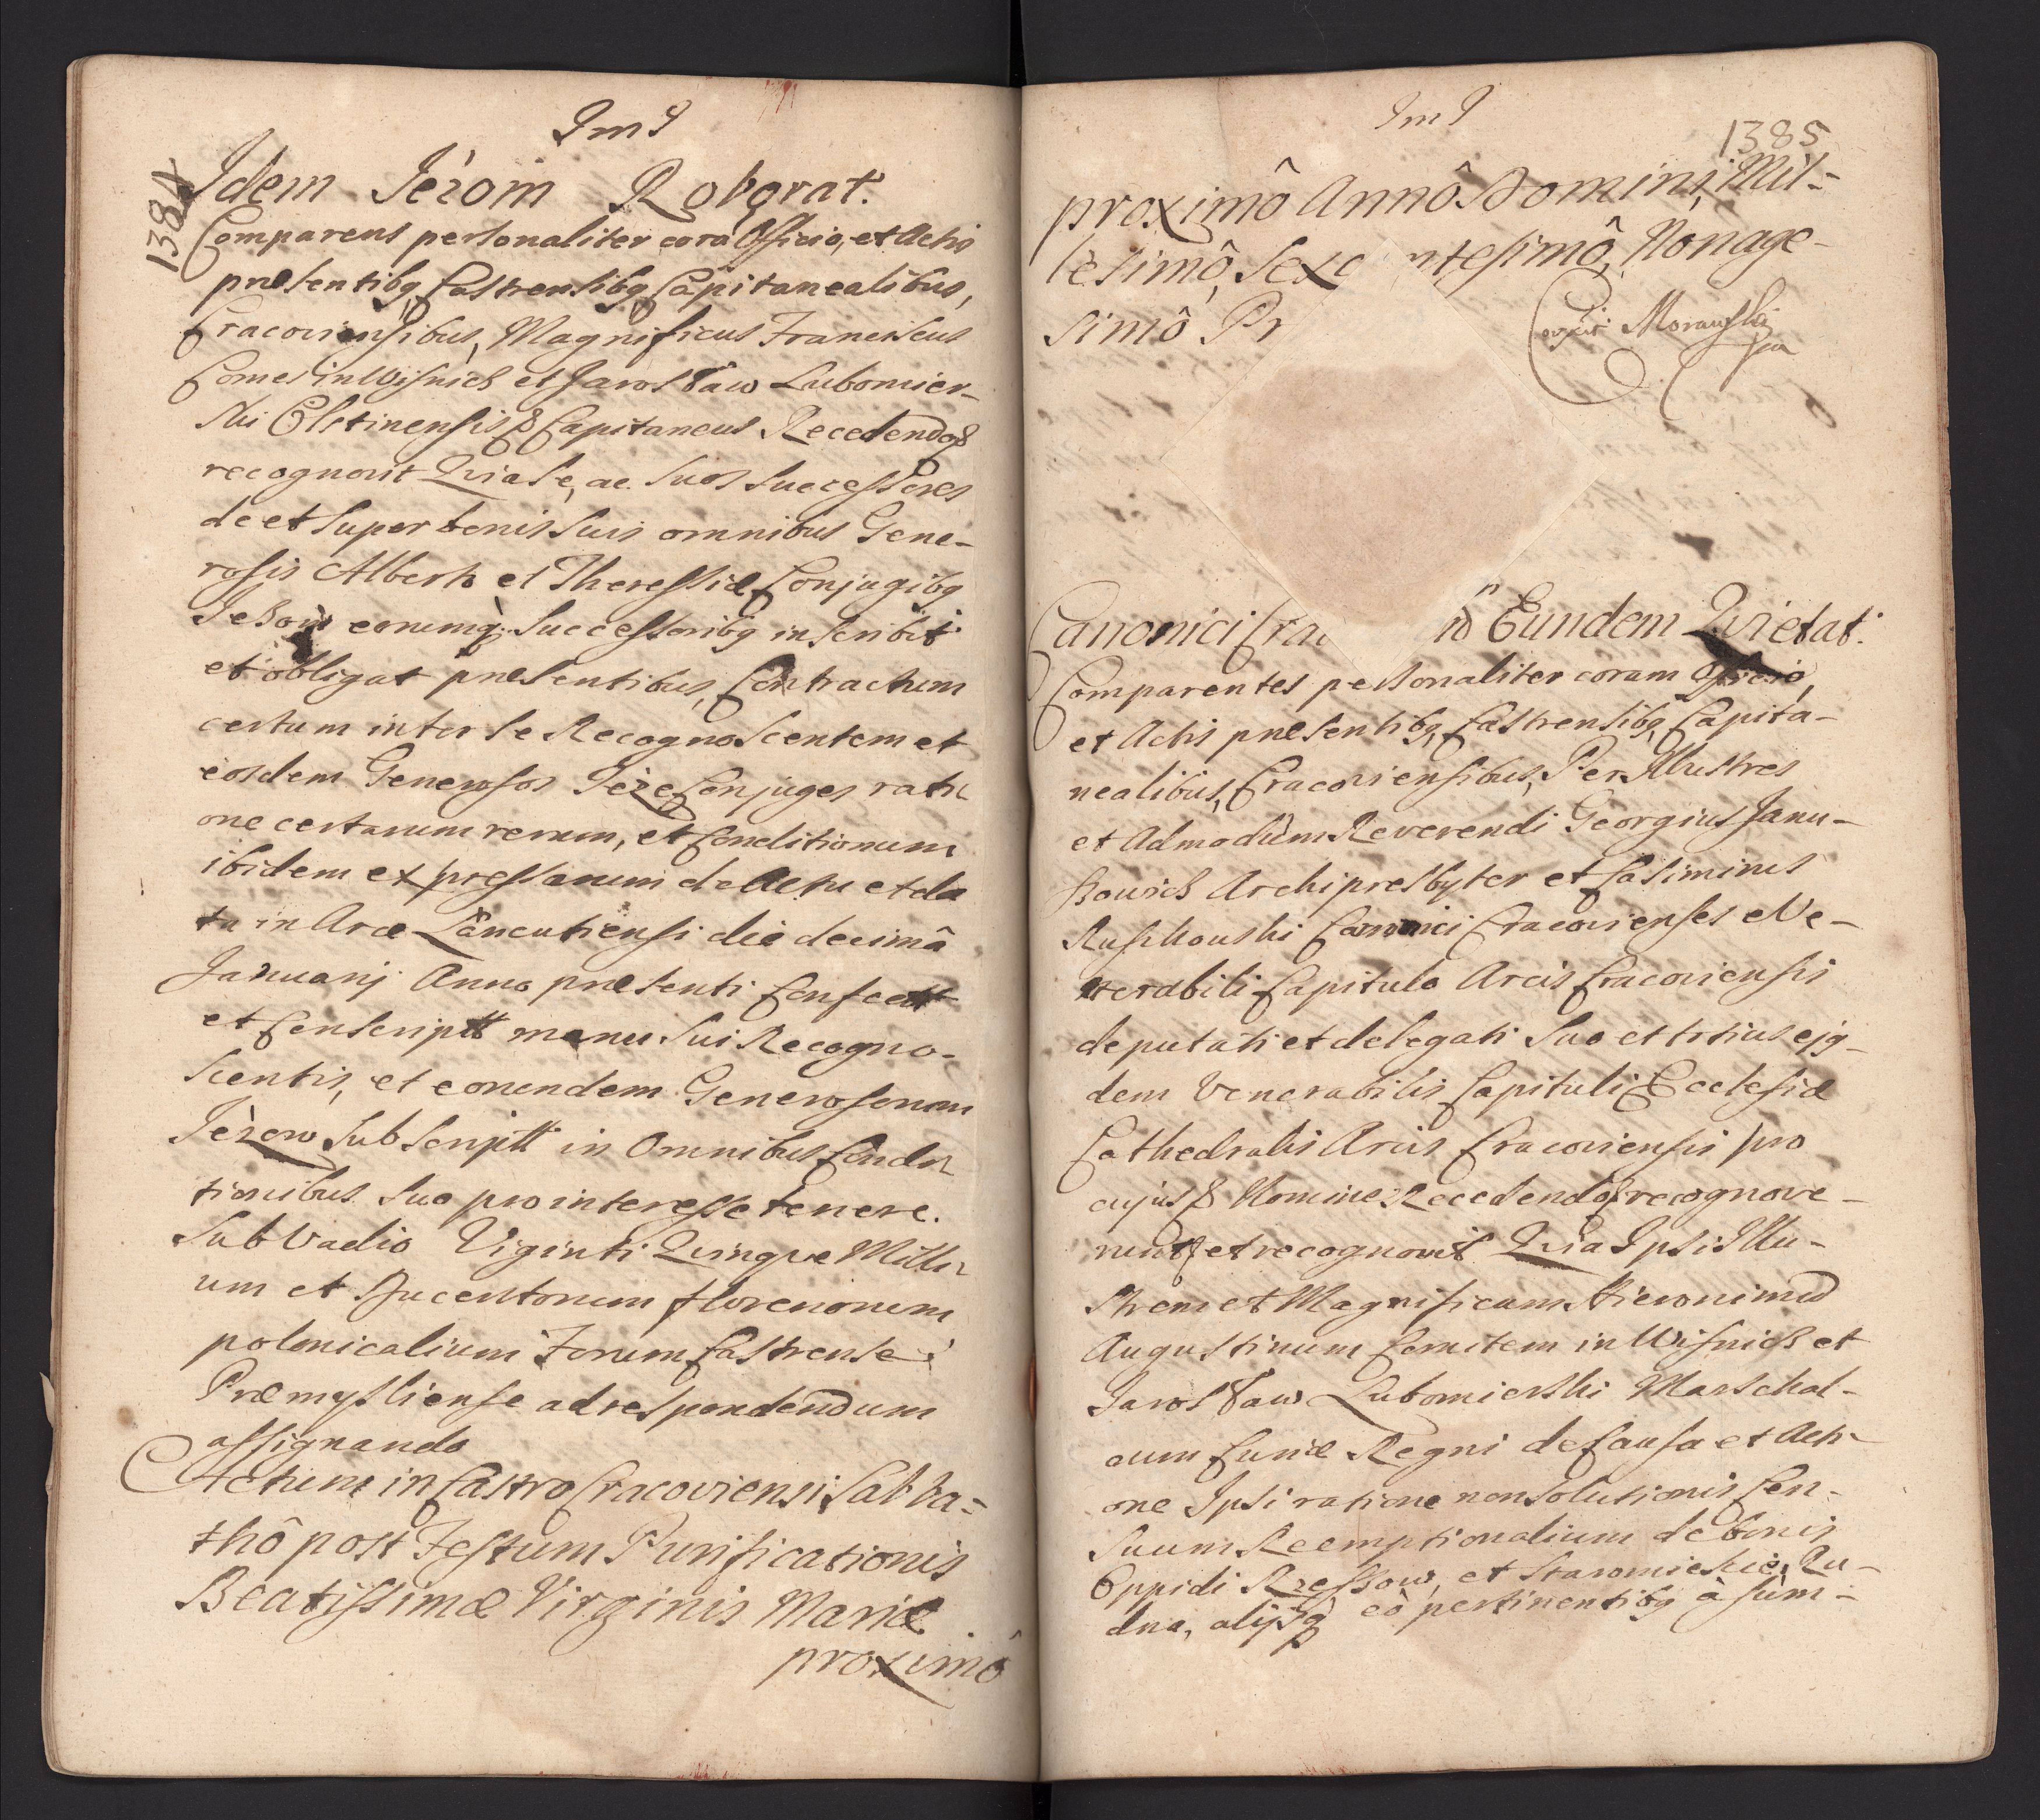 ImI
1384
Idem Jezom Roborat:
Comparens personaliter corā Officio, et Actis
præsentibq Castrensibq Capitanealibus,
Cracoviensibus, Magnificus Franciscus
Comes in Wisnicz et Jarosław Lubomier-
ski Olstinensis & Capitaneus Recedendo &
recognovit Quia Se, ac Suos Successores
de et Super bonis Suis omnibus Gene-
rosis Alberto et Theressiæ Conjugibq
Jezow eorumq; Successoribq inscribit
et obligat præsentibus, Contractum
certum inter se Recognoscentem et
eosdem Generosos Jeze Conjuges rati-
one certarum rerum, et Conditionum
ibidem expressarum de Actu et da
ta in Arce Łancutiensi die decimâ
Januarij Anno præsenti Confectt
et Conscriptt manu Sui Recogno-
scentis, et eorundem Generosorum
Jezow Subscriptt in Omnibus Condi-
tionibus Suo pro interesse tenere.
Sub Vadio Viginti Quinque Milli-
um et Ducentorum florenorum
polonicalium Forum Castrense
Præmysliense ad respondendum
assignando
Actum in Castro Cracoviensi Sabba=
thô post Festum Purificationis
Beatissimæ Virginis Mariæ
proximô
ImI
1385
proximô Annô Domini, Mil=
lesimô, Sexc ntesimô, Nonage-
simô Pr
Morawski
mpa
Canonici Crac Eundem Quietat:
Comparentes personaliter coram Officio,
et Actis præsentibq Castrensibq Capita-
nealibus, Cracoviensibus, Per Illustres
et Admodùm Reverendi Georgius Janu-
szowicz Archipresbyter et Casimirus
Ruszkowski Canonici Cracovienses e Ve-
nerabili Capitulo Arcis Cracoviensis
deputati et delegati Suo et totius ejq-
dem Venerabilis Capituli Ecclesiæ
Cathedralis Arcis Cracoviensis pro
cujus & Nomine Recedendo & recognove-
runt et recognovit Quia Ipsi Illu-
strem et Magnificum Hieronimū
Augustinum Comitem in Wisnicz et
Jarosław Lubomierski Marschal-
cum Curiæ Regni de Causa et Acti-
one Ipsi ratione non Solutionis Cen-
suum Reemptionalium de bonis
Oppidi Rzessow, et Staromiescie, Ru-
dna, alijsq eò pertinentibq à Sum-